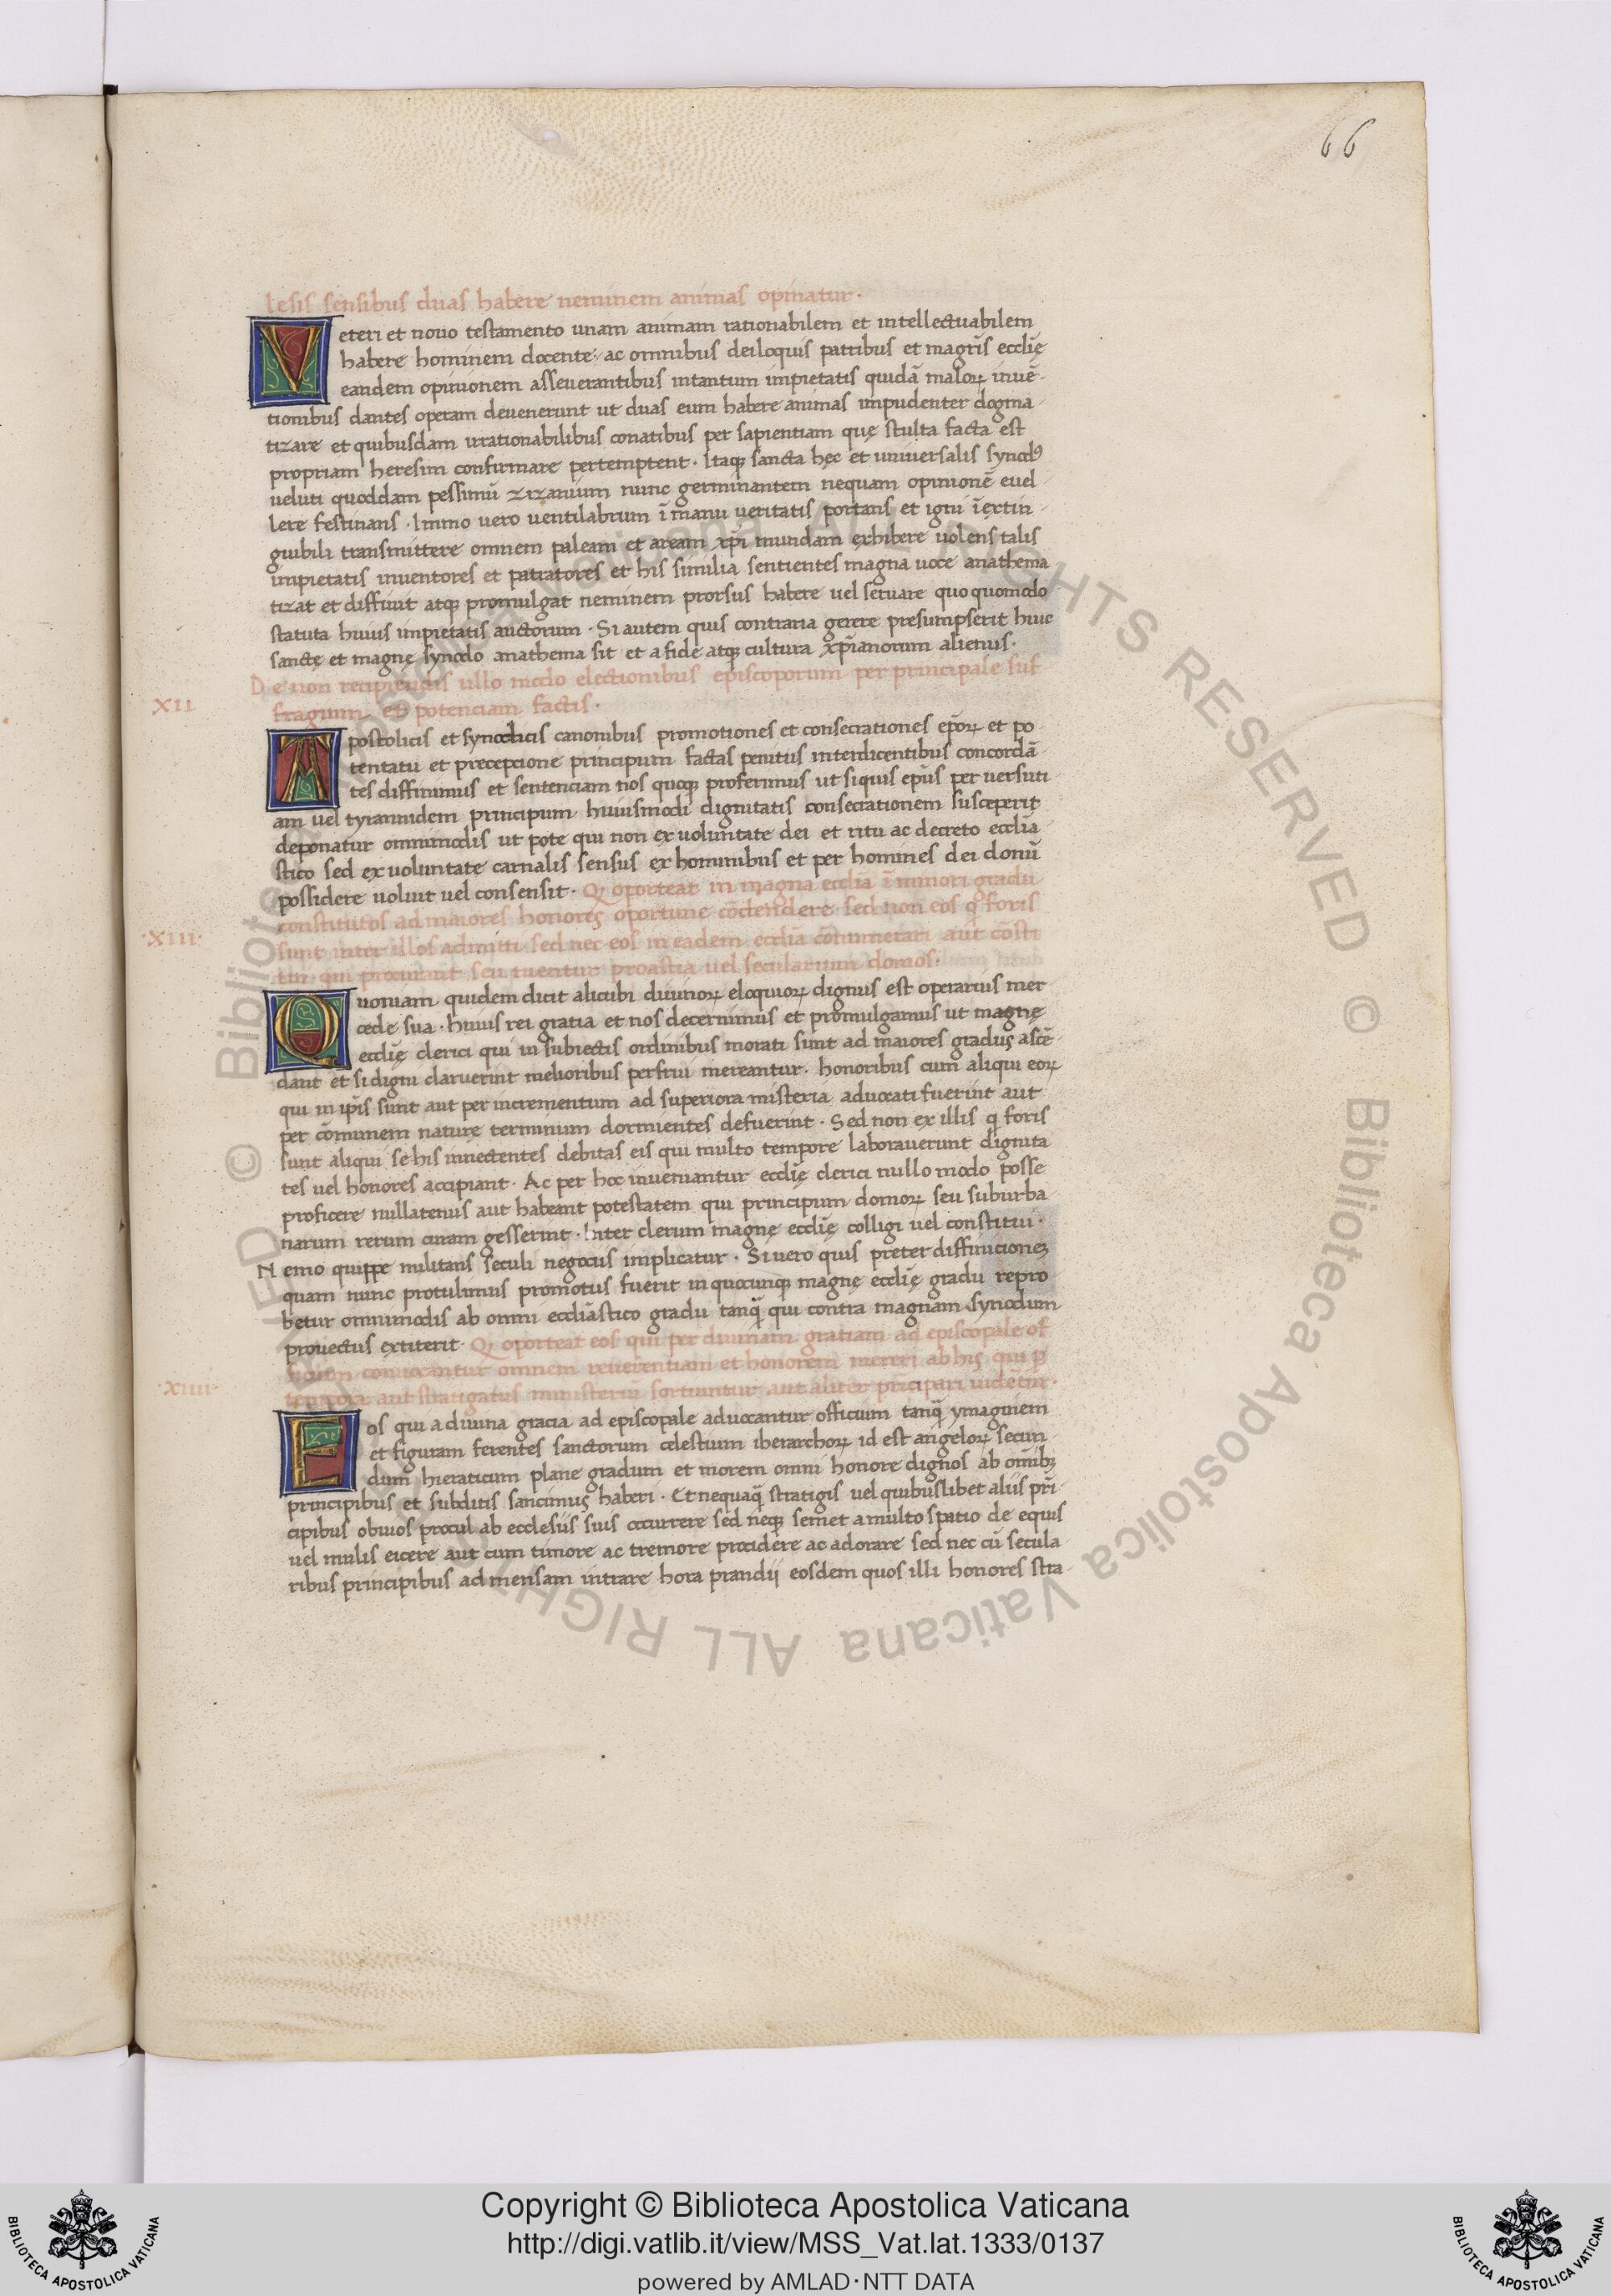 66
lesis sensibus duas habere neminem animas opinatur.
Veteri et nouo testamento unam animam rationabilem et intellectuabilem
habere hominem docente: ac omnibus deiloquis patribus et magr̄is eccl̄ię
eandem opinionem asseuerantibus intantum impietatis quidā maloꝝ inuē-
tionibus dantes operam deuenerunt ut duas eum habere animas impudenter dogma-
tizare et quibusdam irrationabilibus conatibus per sapientiam quę stulta facta est
propriam heresim confirmare pertemptent. Itaqꝫ sancta hęc et uniuersalis synodꝰ
ueluti quoddam pessimū zizanium nunc germinantem nequam opinionē euel-
lere festinans. Immo uero uentilabrum ī manu ueritatis portans et igni īextin-
guibili transmittere omnem paleam et aream xp̄i mundam exhibere uolens talis
impietatis inuentores et patratores et his similia sentientes magna uoce anathema
tizat et diffinit atqꝫ promulgat neminem prorsus habere uel seruare quoquomodo
statuta huius impietatis auctorum. Si autem quis contraria gerere presumpserit huic
sanctę et magnę synodo anathema sit et a fide atqꝫ cultura xp̄ianorum alienus.
De non recipiendis ullo modo electionibus episcoporum per principale suf
XII
fragium et potenciam factis.
Apostolicis et synodicis canonibus promotiones et consecrationes ep̄oꝝ et po
tentatu et precepcione principum factas penitus interdicentibus concordā-
tes diffinimus et sentenciam nos quoqꝫ proferimus ut siquis ep̄us per uersuti
am uel tyrannidem principum huiusmodi dignitatis consecrationem susceperit
deponatur omnimodis ut pote qui non ex uoluntate dei et ritu ac decreto eccl̄ia-
stico sed ex uoluntate carnalis sensus ex hominibus et per homines dei donū
possidere uoluit uel consensit. Q oporteat in magna eccl̄ia ī minori gradu
constitutos ad maiores honores oportune cōdendere sed non eos q̄ foris
XIII
sunt inter illos admitti sed nec eos in eadem eccl̄ia cōnumerari aut cōsti
tui qui procurant seu tuentur proastia uel secularium domos.
Quoniam quidem dicit alicubi diuinoꝝ eloquioꝝ dignus est operarius mer
cede sua. huius rei gratia et nos decernimus et promulgamus ut magnę
eccl̄ię clerici qui in subiectis ordinibus morati sunt ad maiores gradus ascē-
dant et si digni claruerint melioribus perfrui mereantur. honoribus cum aliqui eoꝝ
qui in ip̄is sunt aut per incrementum ad superiora misteria aduocati fuerint aut
per cōmunem naturę terminum dormientes defuerint. Sed non ex illis q̄ foris
sunt aliqui se his innectentes debitas eis qui multo tempore laborauerunt dignita
tes uel honores accipiant. Ac per hoc inueniantur eccl̄ię clerici nullo modo posse
proficere nullatenus aut habeant potestatem qui principum domoꝝ seu suburba
narum rerum curam gesserint. Inter clerum magnę eccl̄ię colligi uel constitui.
Nemo quippe militans seculi negociis implicatur. Si uero quis preter diffinicionez
quam nunc protulimus promotus fuerit in quocunqꝫ magnę eccl̄ię gradu repro
betur omnimodis ab omni eccl̄iastico gradu tanq̄ qui contra magnam synodum
prouectus extiterit. Q oporteat eos qui per diuinam gratiam ad episcopale of
ficium conuocantur omnem reuerentiam et honorem mereri ab his qui p
XIIII
tempora aut stratigatus ministeriū sortiuntur aut aliter principari uidētur.
Eos qui a diuina gracia ad episcopale aduocantur officium tanq̄ ymaginem
et figuram ferentes sanctorum celestium iherarchoꝝ id est angeloꝝ secun-
dum hieraticum plane gradum et morem omni honore dignos ab omībꝫ
principibus et subditis sancimus haberi. Et nequaq̄ stratigis uel quibuslibet aliis prī-
cipibus obuios procul ab ecclesiis suis occurrere sed neqꝫ semet a multo spatio de equis
uel mulis eicere aut cum timore ac tremore procidere ac adorare sed nec cū secula
ribus principibus ad mensam intrare hora prandij eosdem quos illi honores stra-
Copyright © Biblioteca Apostolica Vaticana
http://digi.vatlib.it/view/MSS_Vat.lat.1333/0137
powered by AMLAD·NTT DATA
BIBLIOTECA APOSTOLICA VATICANA
BIBLIOTECA APOSTOLICA VATICANA